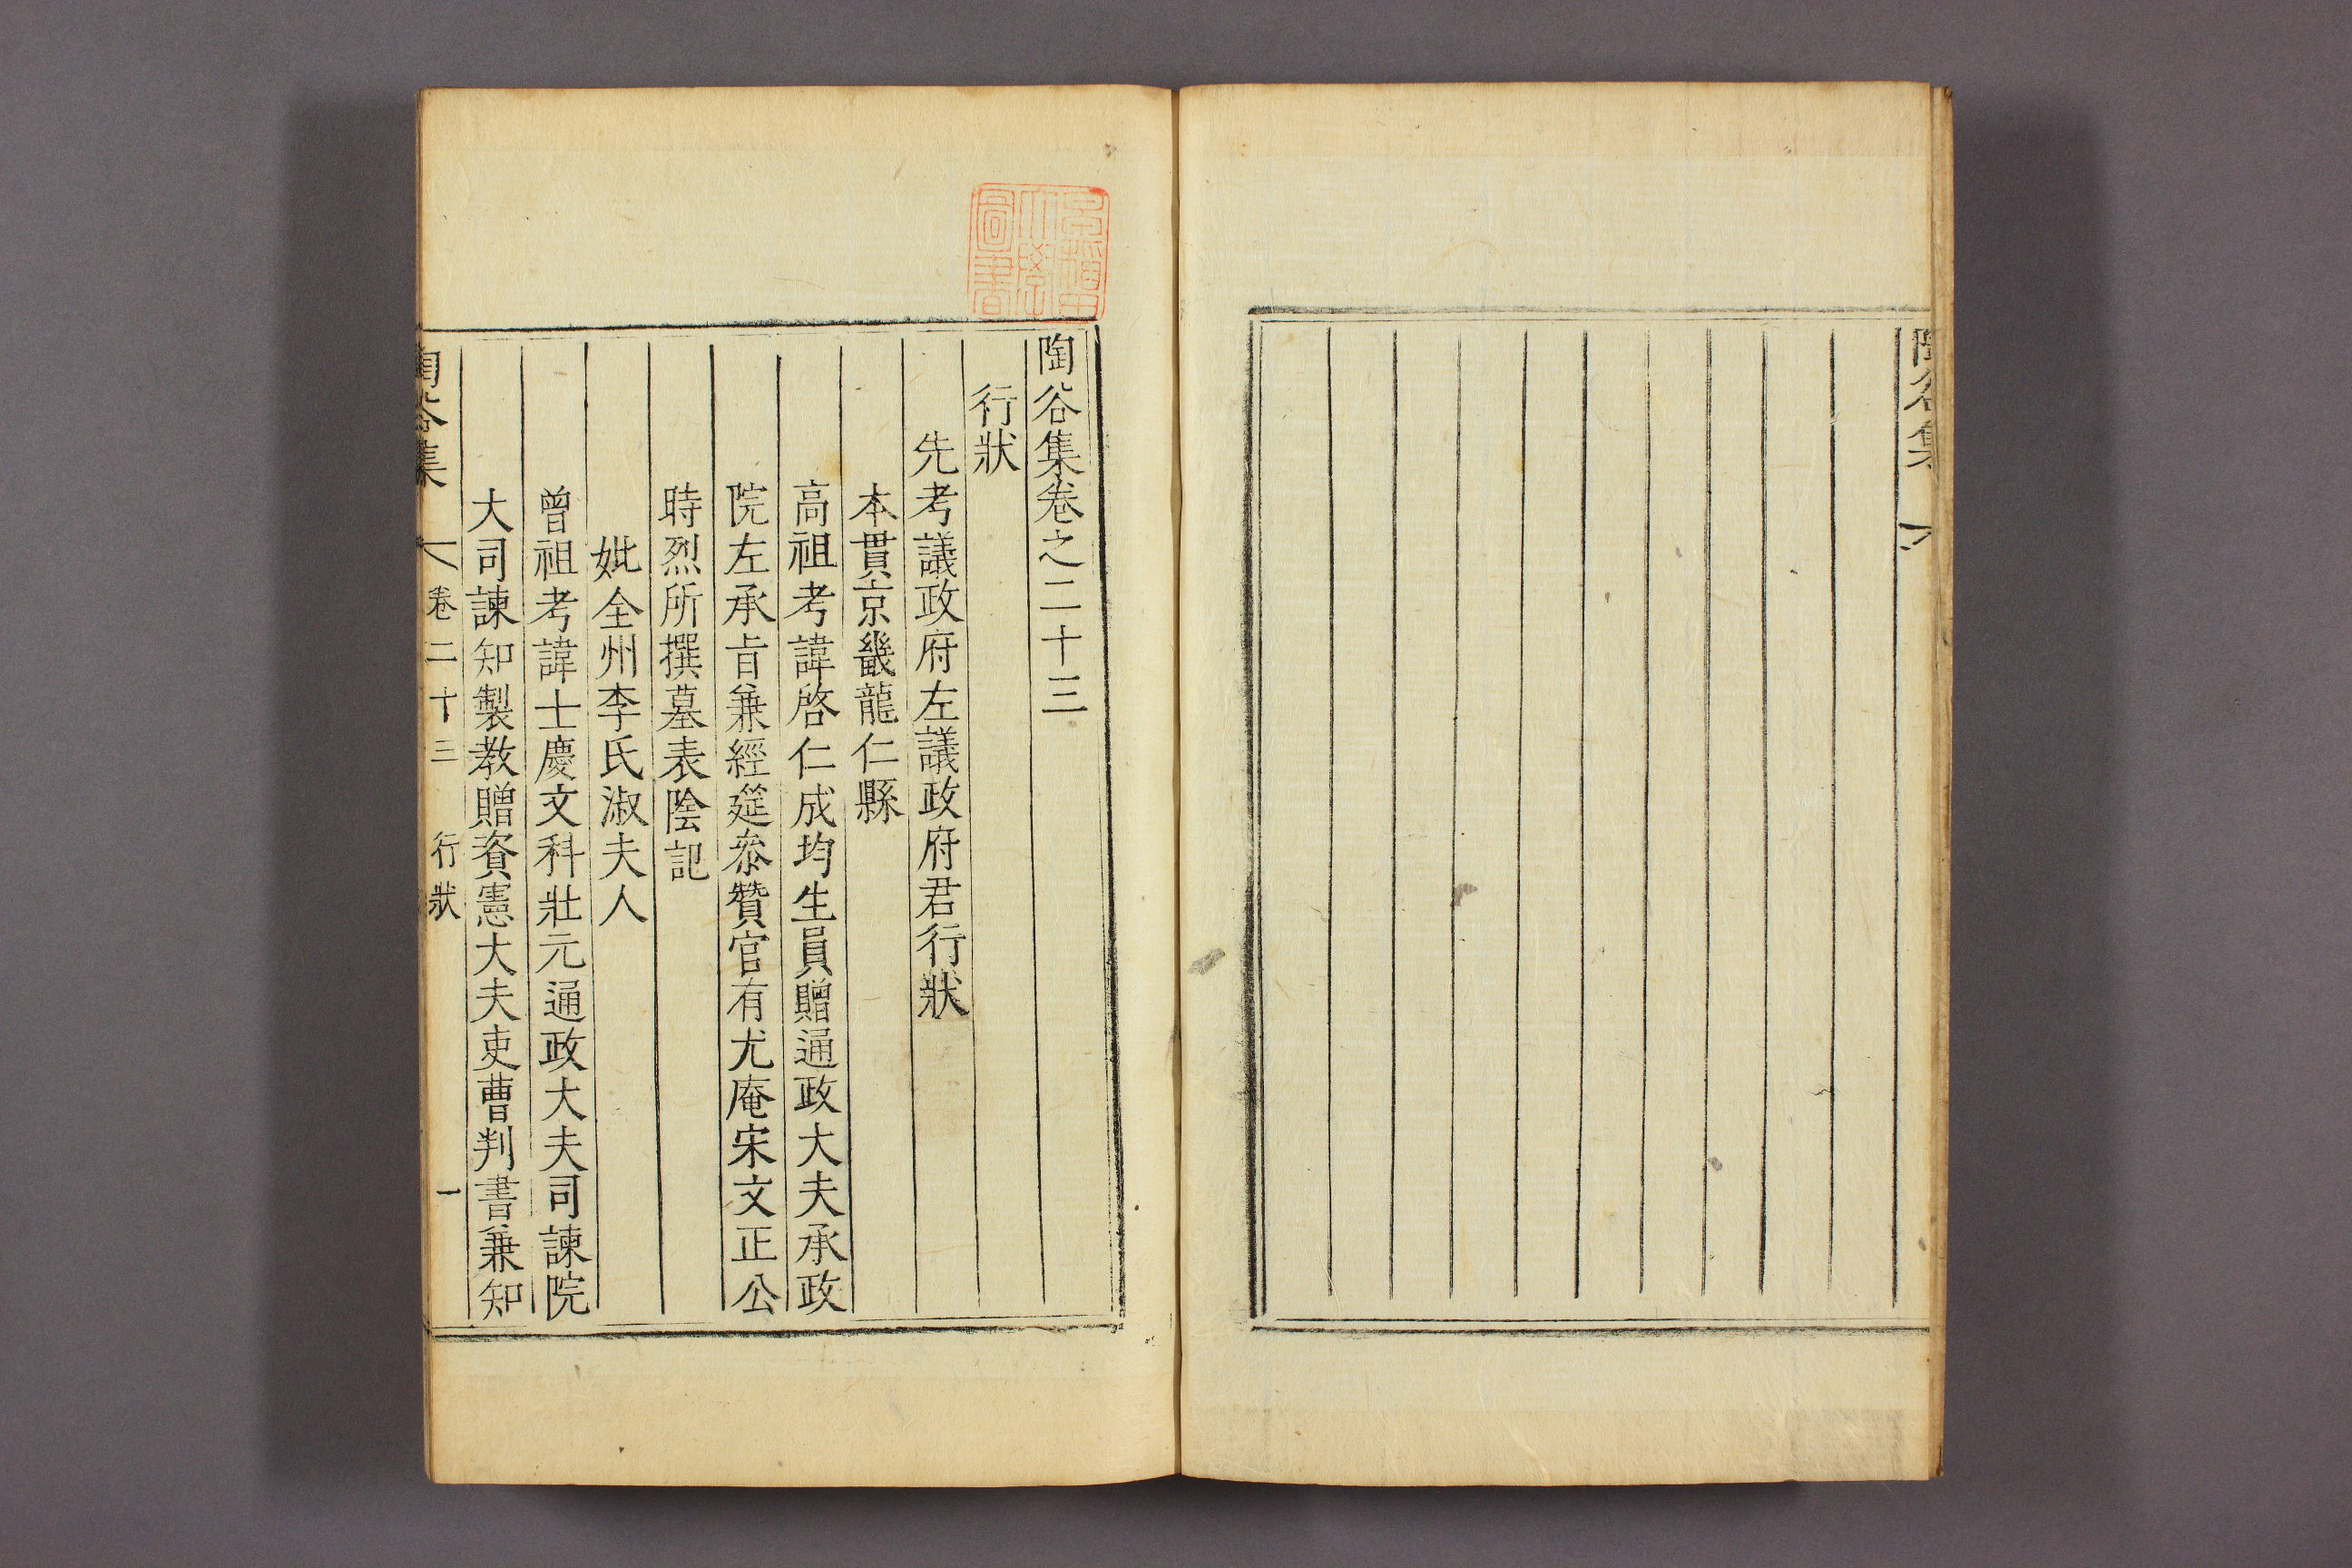 陶谷集
陶谷集卷之二十三
行狀
先考議政府左議政府君行狀
本貫京畿龍仁縣
高祖考諱啓仁成均生員贈通政大夫承政
院左承旨兼經筵叅贊官有尤庵宋文正公
時烈所撰墓表陰記
妣全州李氏淑夫人
曾祖考諱士慶文科壯元通政大夫司諫院
大司諫知製教贈資憲大夫吏曹判書兼知
陶谷集 卷二十三 行狀 一
早稻田大學圖書